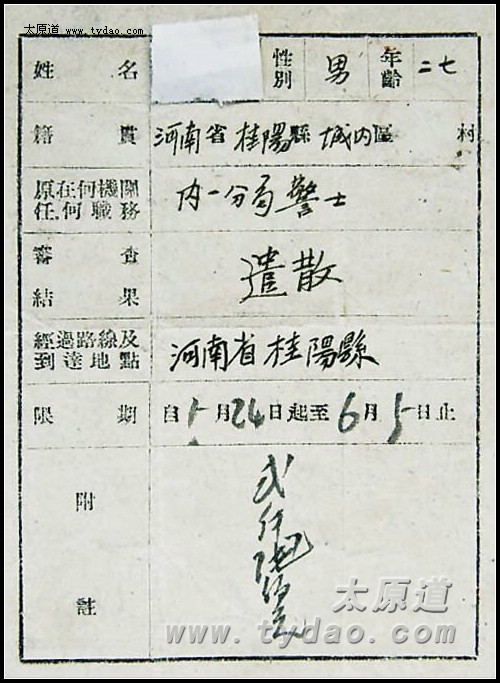 太原道
www.tydao.com
姓名 性別 男 年齡 二七
籍貫 河南省桂陽縣城内區 村
原在何機關任何職務 内一分局警士
審查結果 遣散
經過路線及到達地點 河南省桂陽縣
限期 自5月24日起至6月5日止
附註
太原道
www.tydao.com